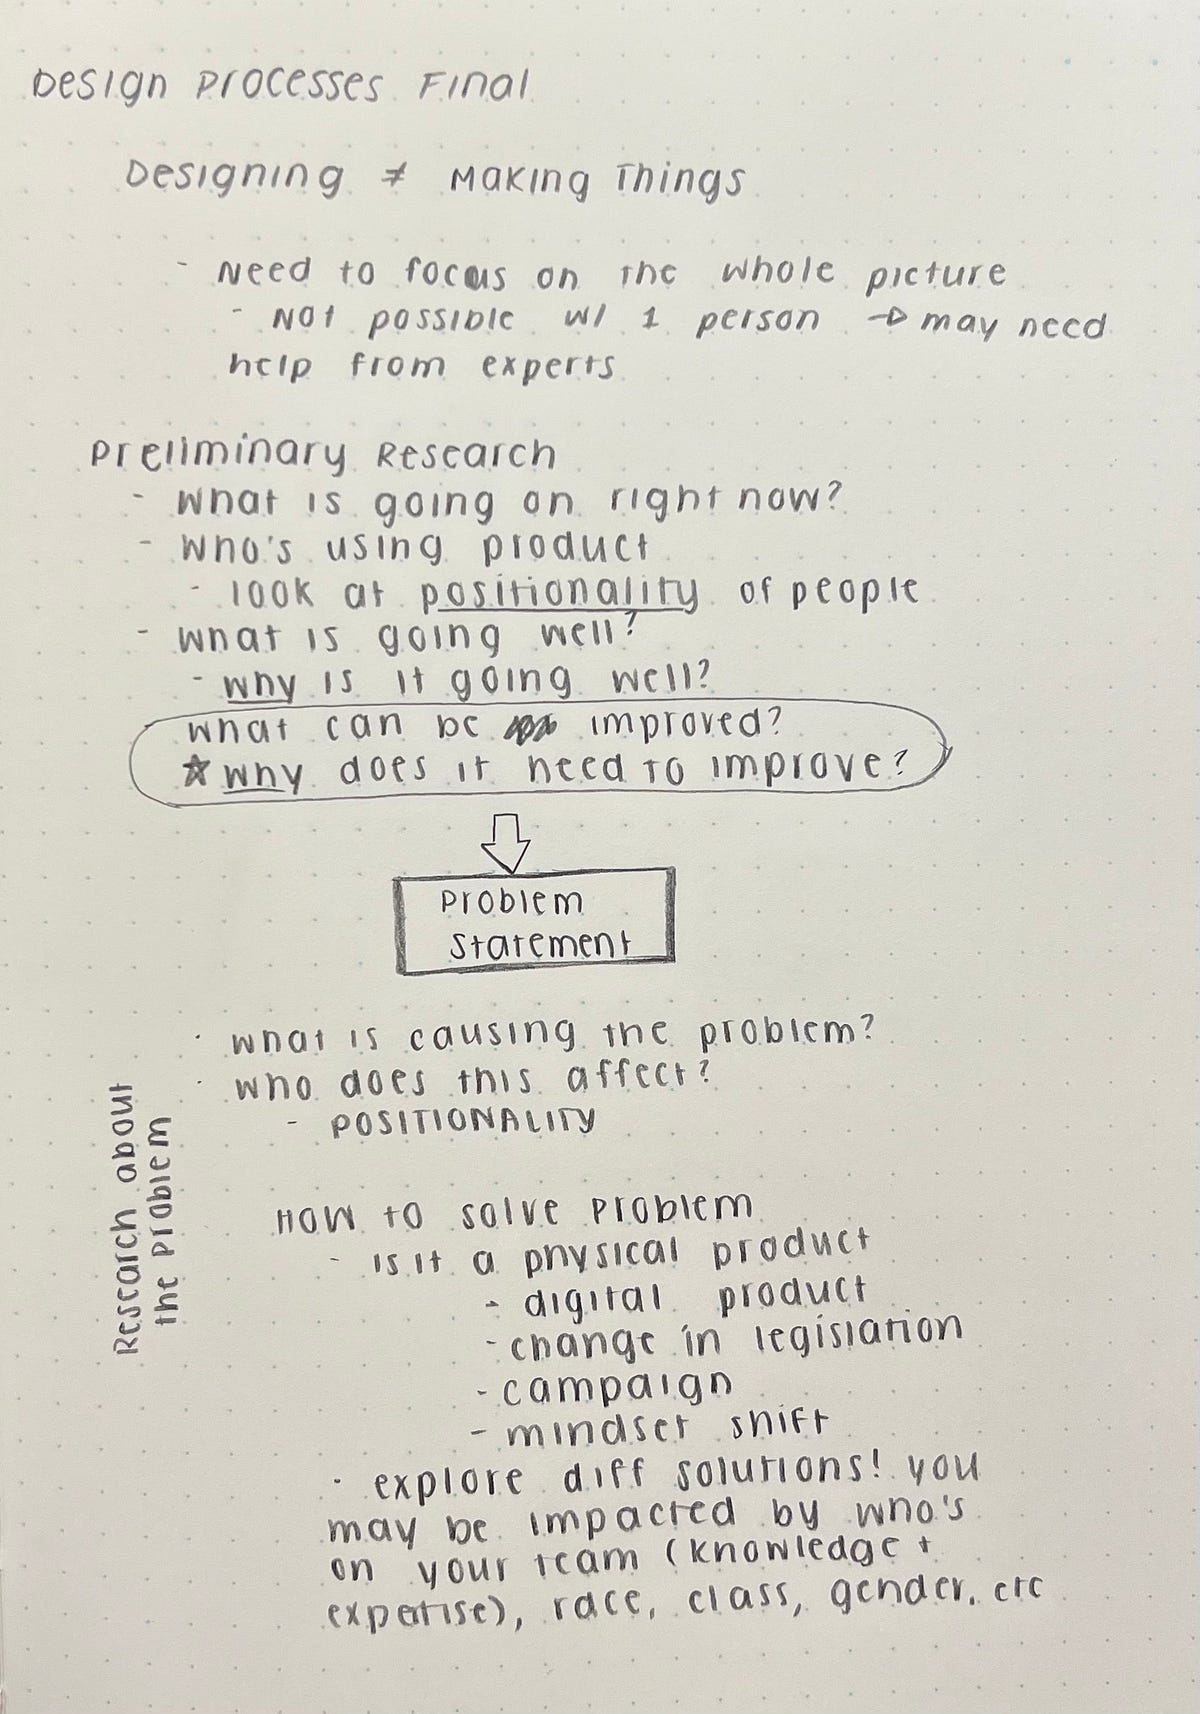 Design Processes Final
Designing ≠ Making Things
- Need to focus on the whole picture
- Not possible w/ 1 person → may need
help from experts
Preliminary Research
- What is going on right now?
- Who's using product
- look at positionality of people
- What is going well?
- why is it going well?
what can be improved?
☆ why does it need to improve?
Problem
Statement
Research about
the problem
· what is causing the problem?
· who does this affect?
- POSITIONALITY
How to solve problem
- is it a physical product
- digital product
- change in legislation
- campaign
- mindset shift
· explore diff solutions! you
may be impacted by who's
on your team (knowledge +
expertise), race, class, gender, etc